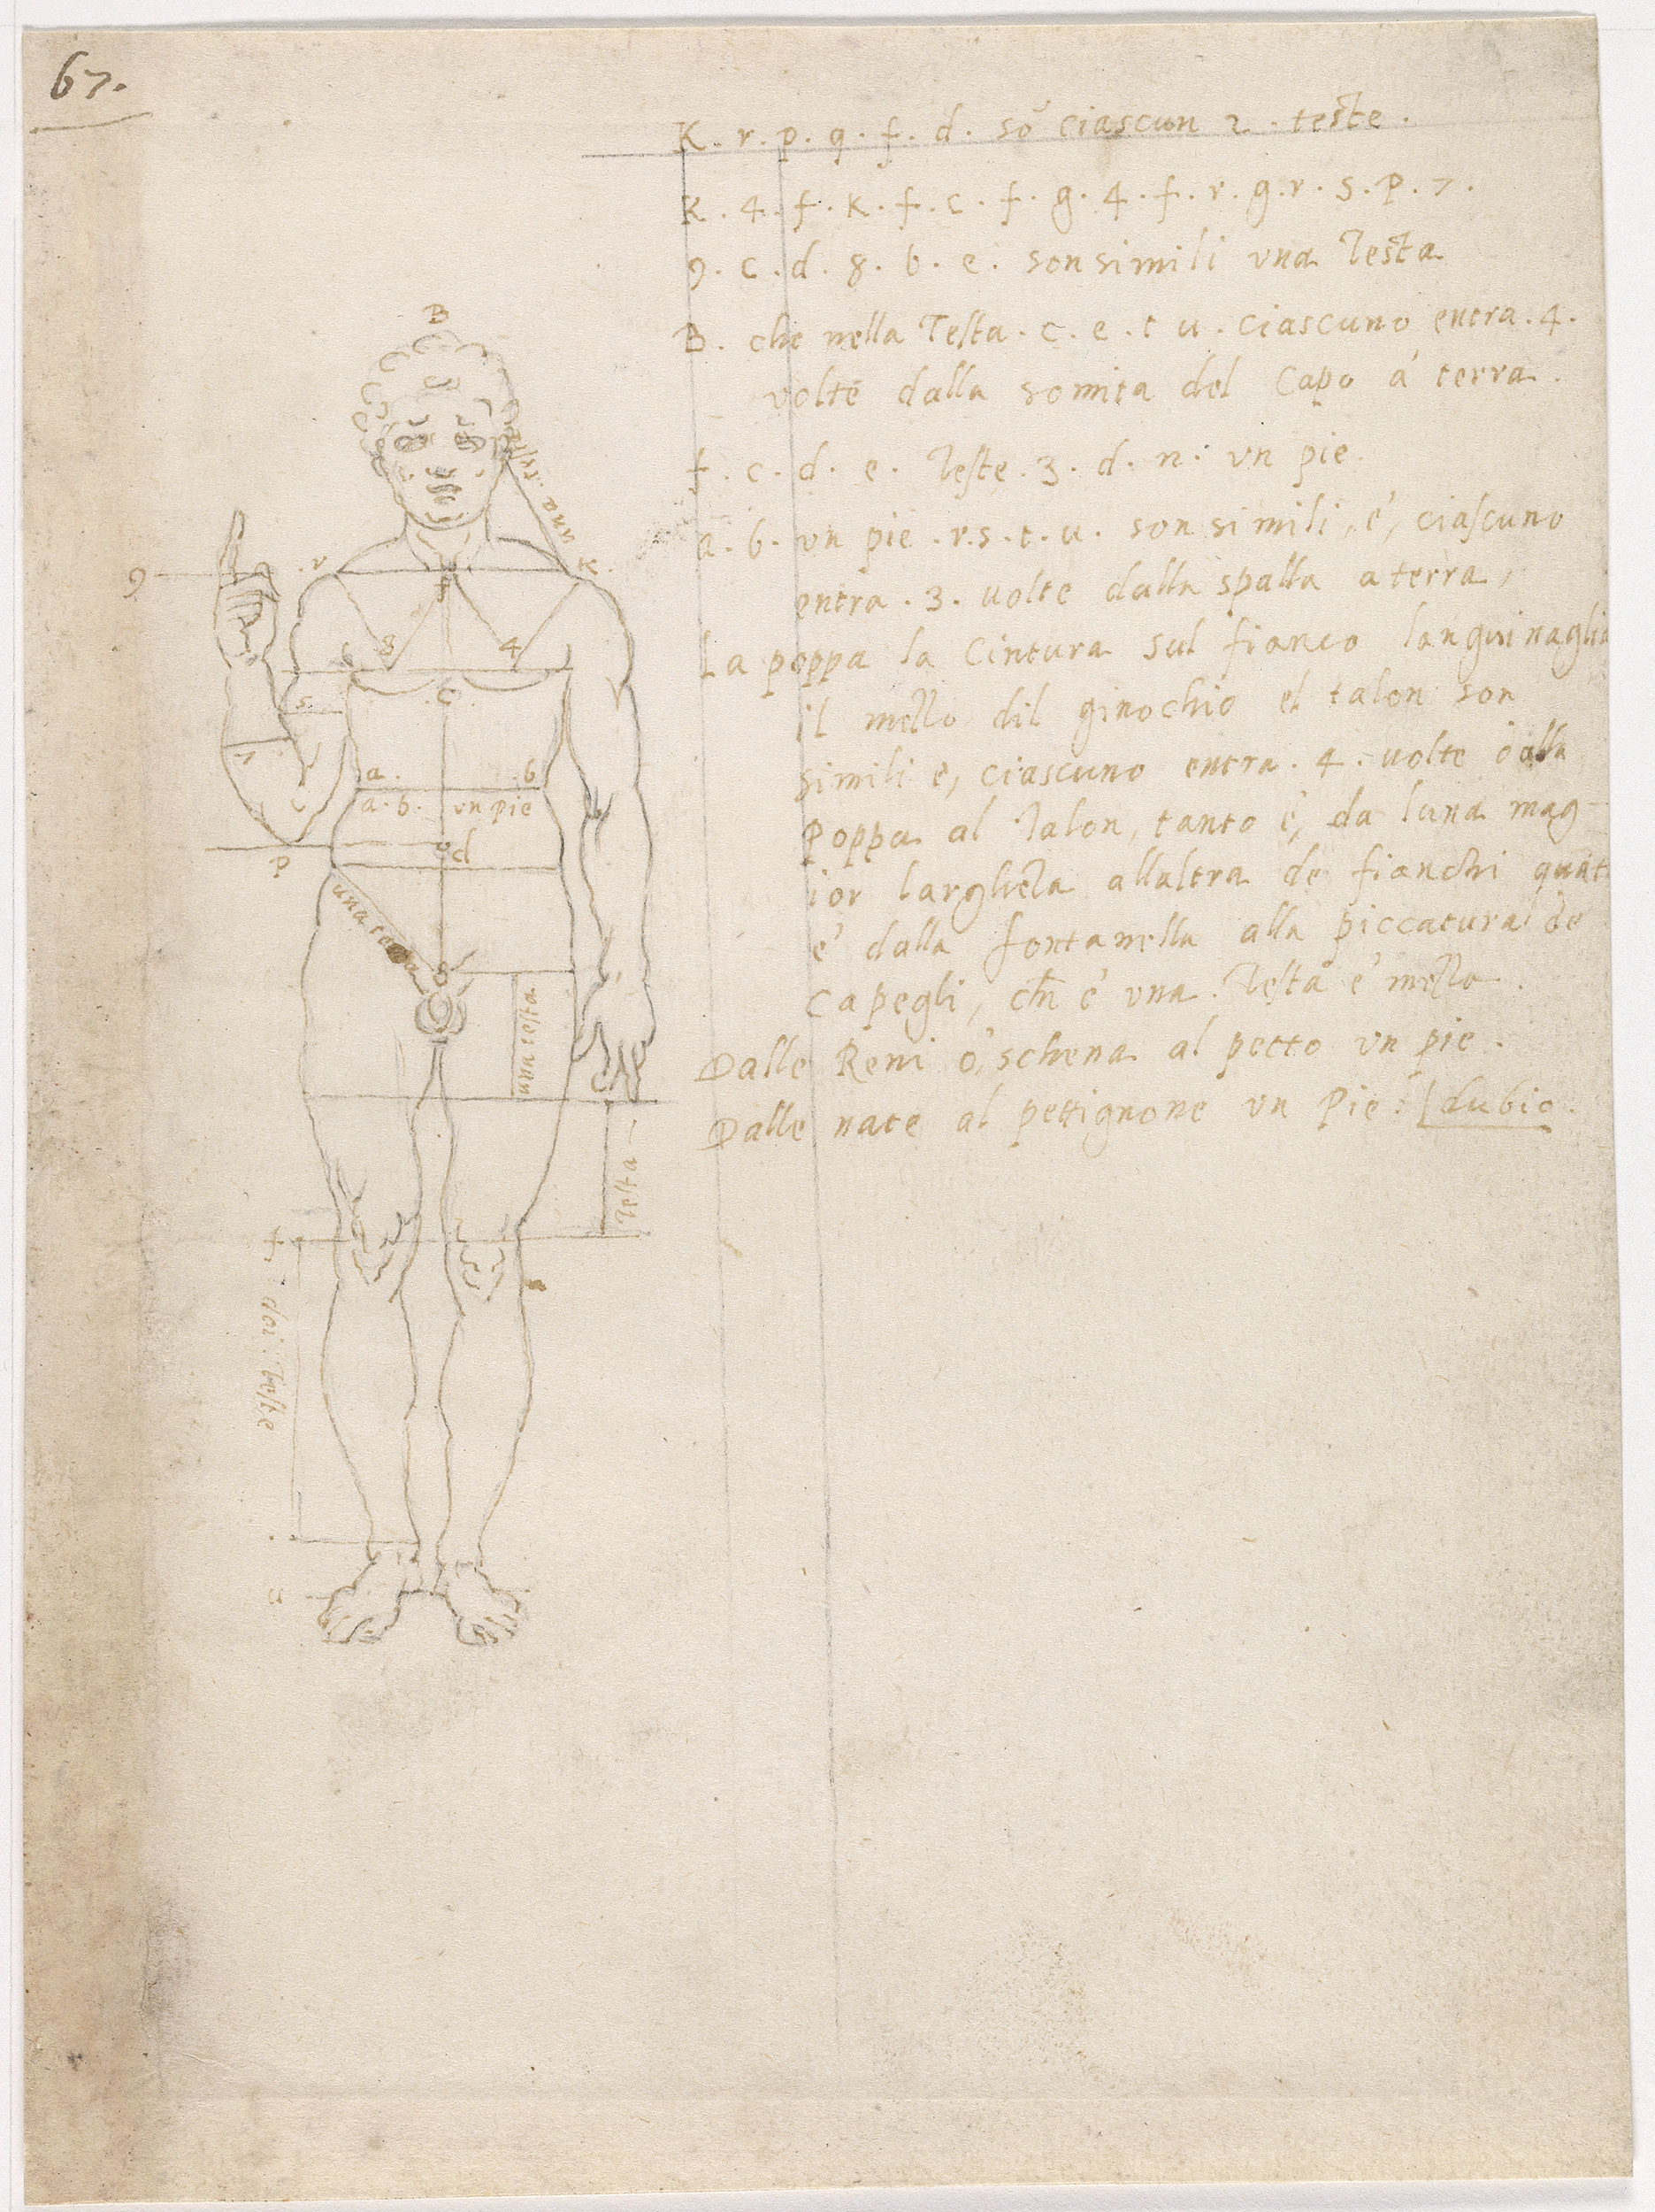 67.
K. r. p. q. f. d. sõ ciascun 2. teste.
K. 4. f. K. f. c. f. g. 4. f. r. g. r. s. p. 7.
9. c. d. 8. b. e. son simili una Testa
B. che nella Testa. c. e. t u. ciascuno entra. 4.
volte dalla somita del Capo à terra.
f. c. d. e. Teste. 3. d. n. un pie.
a. b. un pie. r. s. t. u. son simili, è, ciascuno
entra. 3. volte dalla spalla a terra,
La poppa la Cintura sul fianco languinaglia
il mezzo dil ginochio el talon son
simili è, ciascuno entra. 4. volte dalla
Poppa al Talon, tanto è, da luna mag
ior larghezza allaltra de fianchi
è dalla fontanella alla piccatura de
Capegli, ch̃ è una. Testa è mezza.
Dalle Reni ò, schena al petto un pie.
Dalle nate al pettignone un Pie: [dubio.
B
una testa
9
.r
K.
8
4
C
s
7
a. b
a. b. un pie
P
d
una testa
una testa
Testa
f
doi Teste